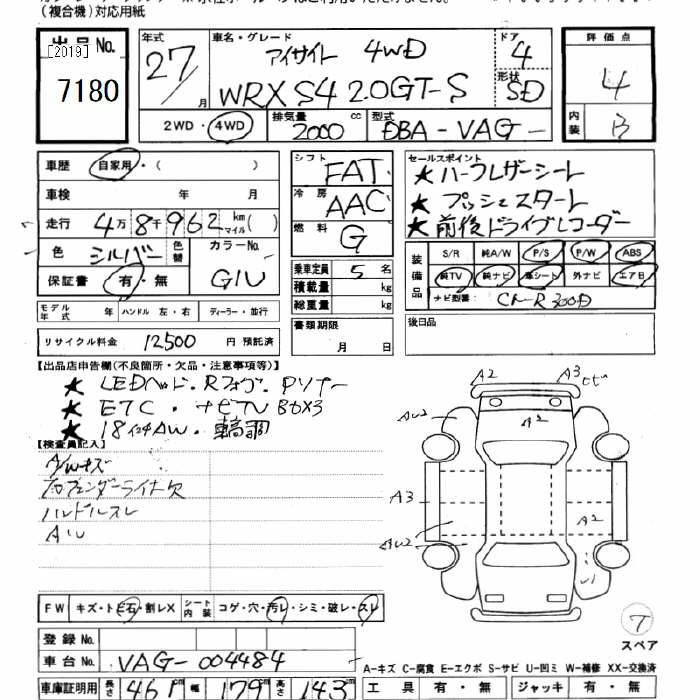 (複合機)対応用紙
出品 No.
[2019]
7180
年式
27/
月
車名・グレード
アイサイト 4WD
WRX S4 2.0GT-S
ドア
4
形状
SD
評価点
4
内装
B
2WD・4WD
排気量
2000
cc
型式
DBA-VAG-
車歴
自家用・( )
車検 年 月
走行 4万8千962 km マイル( )
色 シルバー 色替
カラーNo.
G1U
保証書 有・無
シフト
FAT
冷房
AAC
燃料
G
乗車定員 5 名
積載量 kg
総重量 kg
セールスポイント
★ ハーフレザーシート
★ プッシュスタート
★ 前後ドライブレコーダー
装備品
S/R 純A/W P/S P/W ABS
純TV 純ナビ 革シート 外ナビ エアB
ナビ型番: CN-R300D
モデル年式 年 ハンドル 左・右 ディーラー・並行
リサイクル料金 12500 円 預託済
書類期限
月 日
後日品
【出品店申告欄(不良箇所・欠品・注意事項等)】
★ LEDヘッド・Rフォグ・Pソナー
★ ETC・ナビTV BOX3
★ 18インチAW・車高調
【検査員記入】
A/Wキズ
フロフェンダーライナー欠
ハンドルスレ
AW
A2
A3
A2
A3
A2
AW2
AW2
FW キズ・トビ石・割レX シート内装 コゲ・穴・汚レ・シミ・破レ・スレ
T
スペア
登録 No.
車台 No. VAG-004484
A-キズ C-腐食 E-エクボ S-サビ U-凹ミ W-補修 XX-交換済
車庫証明用 長さ 461 cm 幅 179 cm 高さ 143 cm
工具 有・無 ジャッキ 有・無